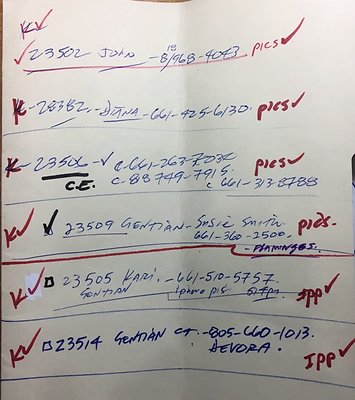 K✓
✓23502 JOHN -818/968-4043 pics✓
K-28382 - DIANA - 661-425-6130. pics✓
K-23506 -✓ C-661-263-7030 pics✓
C.E. C-818 749-7915.
C 661-313-8788
K✓ ✓ 23509 GENTIAN - SUSIE SMITH. pics✓
661-360-2500.
-FLAMINGOS.
K✓ □ 23505 KARI. -661-510-5757. IPP✓
GENTIAN
K✓ □ 23514 GENTIAN CT. -805-660-1013. IPP✓
DEVORA.